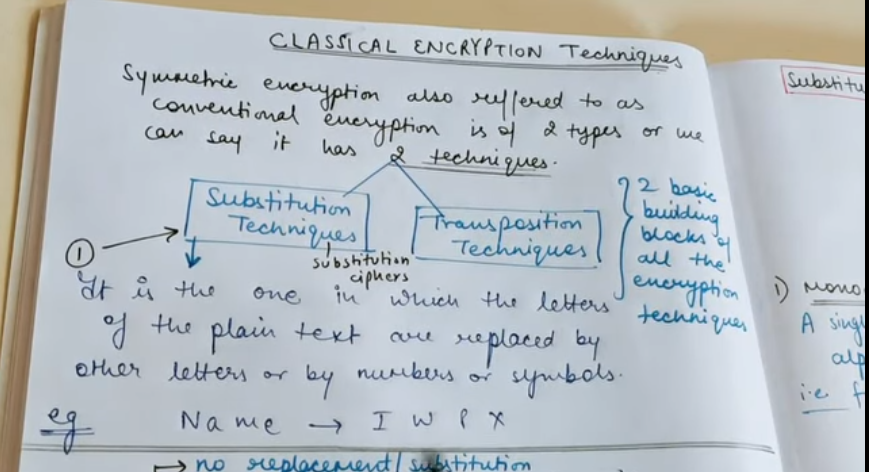 CLASSICAL ENCRYPTION Techniques
Symmetric encryption also reffered to as
conventional encryption is of 2 types or we
can say it has 2 techniques.
Substitution
Techniques
substitution
ciphers
Transposition
Techniques
2 basic
building
blocks of
all the
encryption
techniques
①
It is the one in which the letters
of the plain text are replaced by
other letters or by numbers or symbols.
eg Name → I W P X
→ no replacement/substitution
Substitu
1) Mono
A singl
alp
i.e f